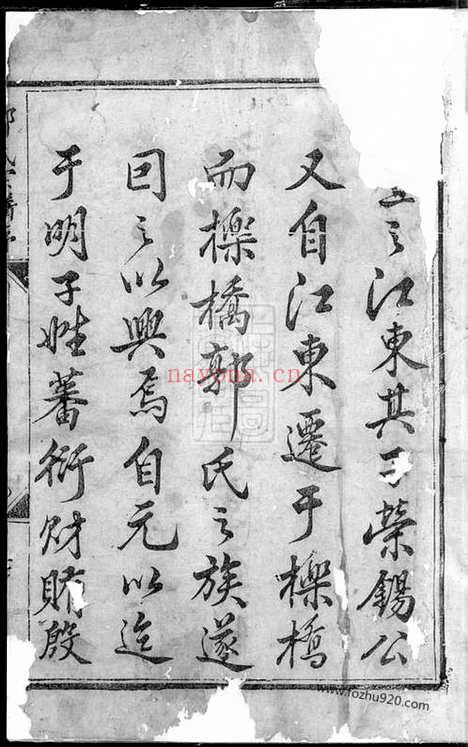 之江東其子榮錫公
又自江東遷于櫟橋
而櫟橋郭氏之族遂
因之以興焉自元以迄
于明子姓蕃衍財賄殷
nayona.cn
www.fozhu920.com